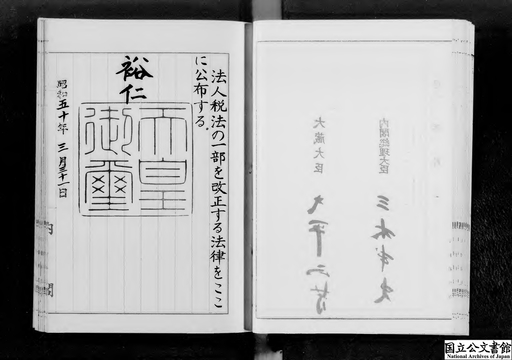 法人税法の一部を改正する法律をここ
に公布する。
裕仁
天皇
御璽
昭和五十年三月三十一日
内閣
内閣総理大臣
三木武夫
大蔵大臣
大平正芳
国立公文書館
National Archives of Japan